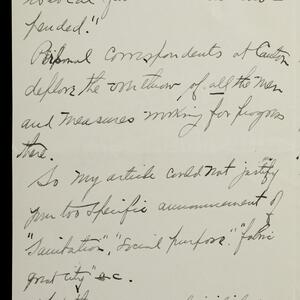 pended."
Personal correspondents at Canton
deplore the overthrow of all the men
and measures working for progress
there.
So my article could not justify
your too specific announcement of
"Sanitation", "Social purpose" "fabric
great city" &c.